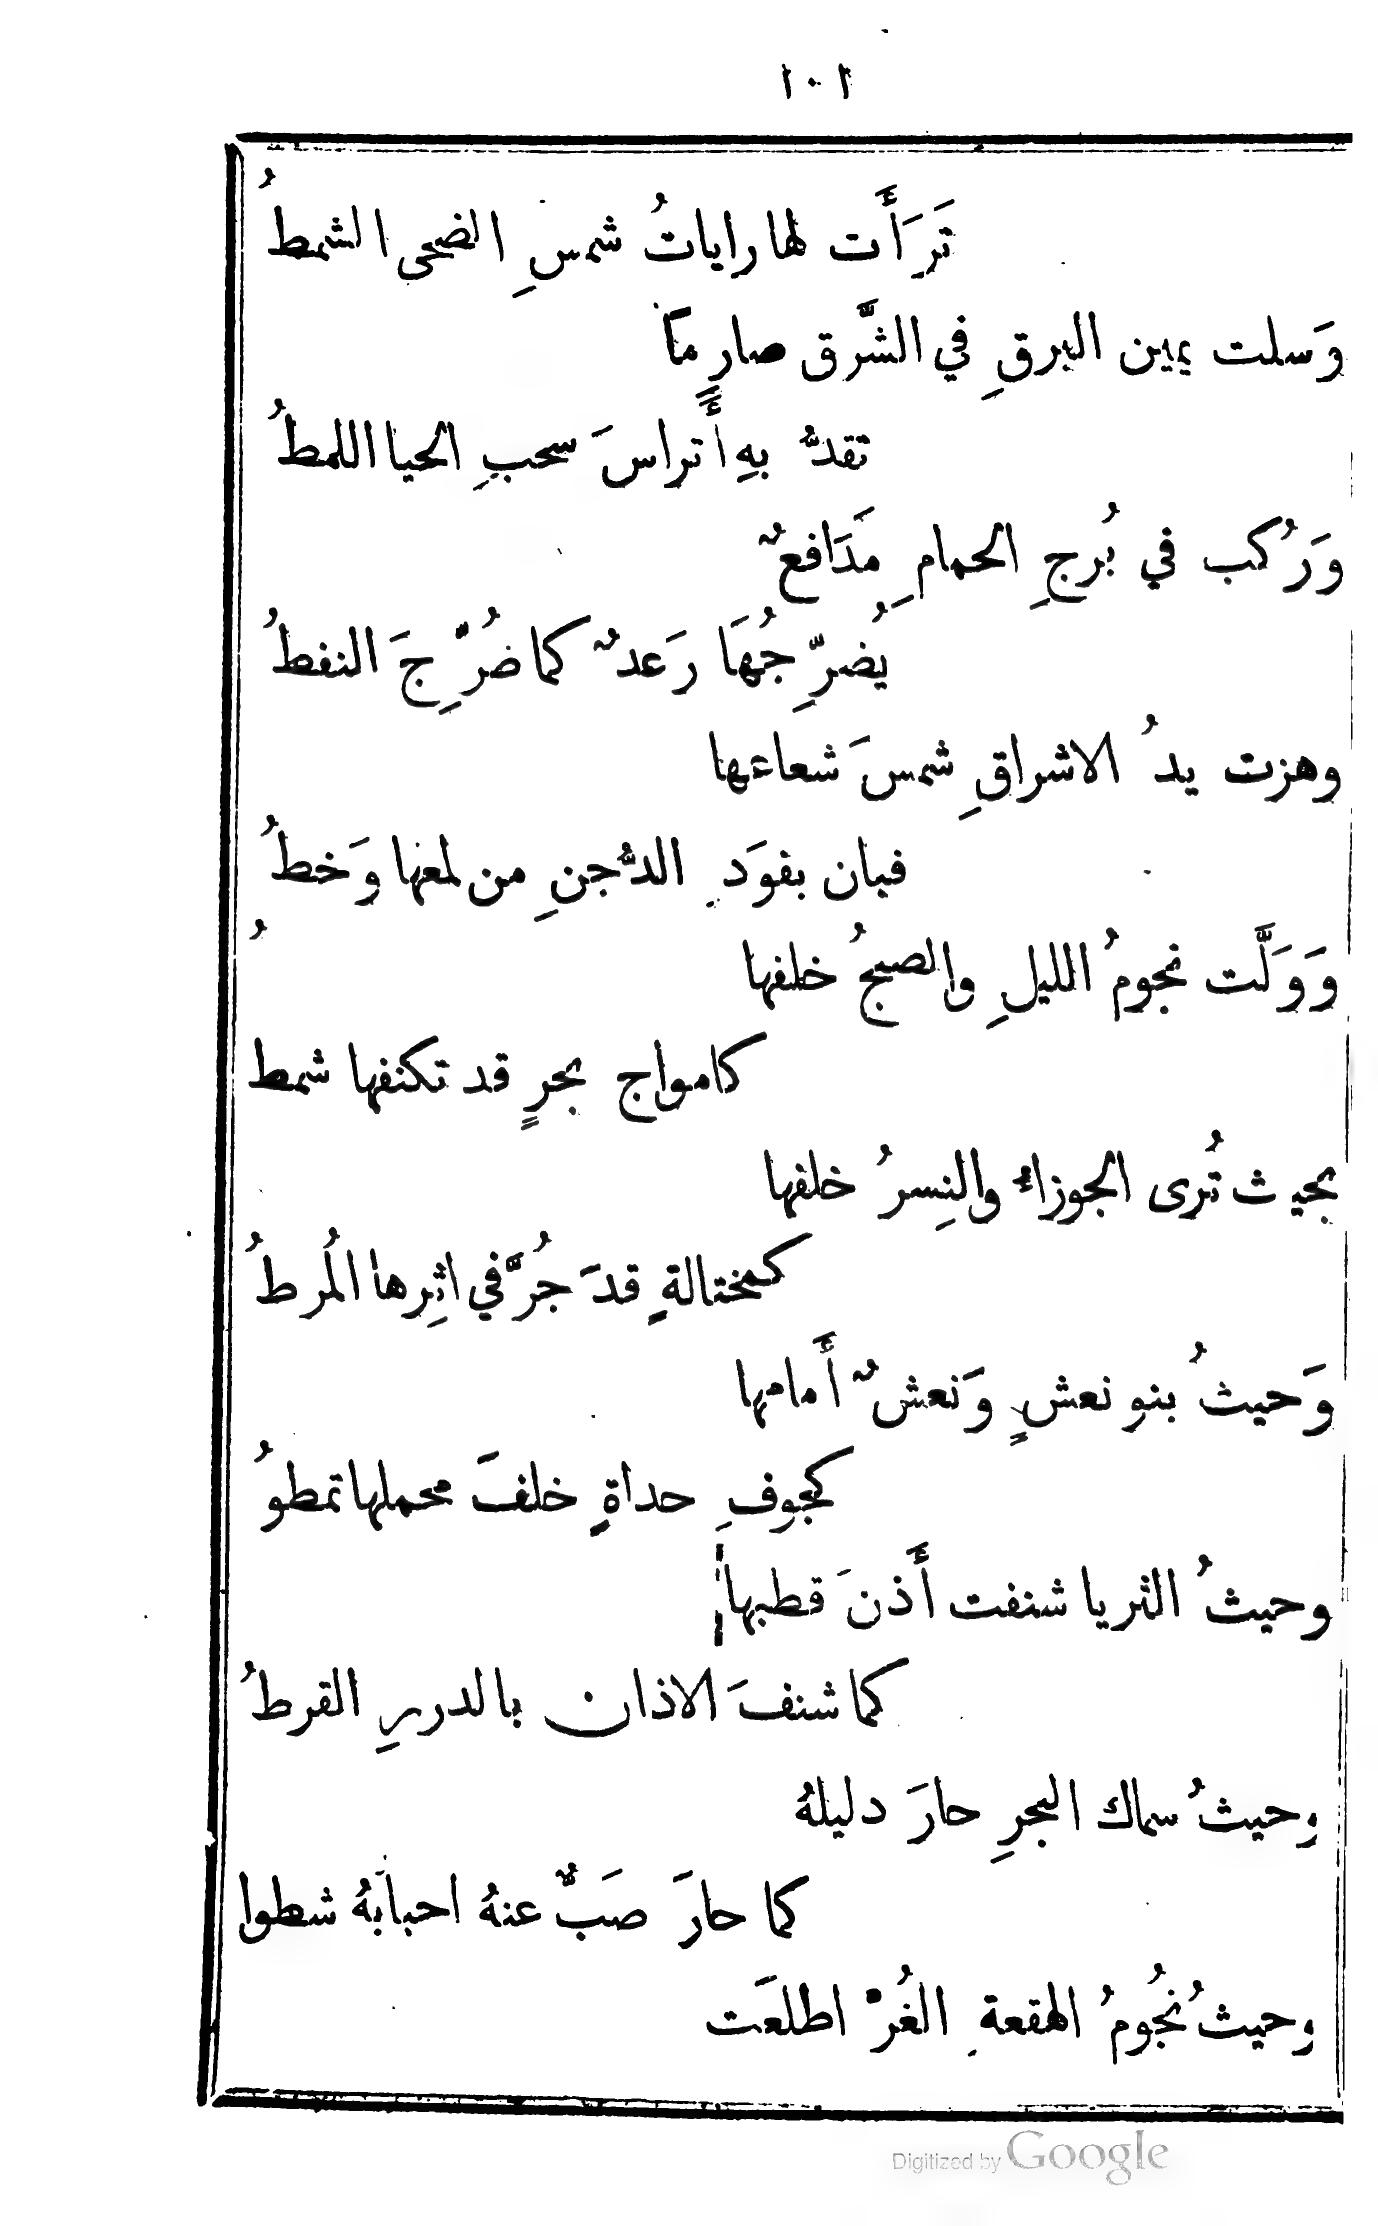 ١٠١
تَرَأَت لها راياتُ شمسِ الضحى الشمطُ
وَسلت يمين البرقِ في الشَّرق صارِماً
تقدُّ بهِ أَتراسَ سحبِ الحيا اللمطُ
وَرُكب في بُرجِ الحمامِ مَدَافعٌ
يُضرِّجُهَا رَعدٌ كما ضُرِّجَ النفطُ
وهزت يدُ الاشراقِ شمسَ شعاعها
فبان بفوَدِ الدُّجنِ من لمعها وَخطُ
وَوَلَّت نجومُ الليلِ والصبحُ خلفها
كامواج بحرٍ قد تكنفها شمطُ
بحيث تُرى الجوزاءُ والنِسرُ خلفها
كمختالةٍ قدَ جُرَّ في اثِرها المُرطُ
وَحيثُ بنو نعشٍ وَنعشٌ أَمامها
كجوفِ حداةٍ خلفَ محملها تمطوُ
وحيثُ الثريا شنفت أَذنَ قطبها
كما شنفَ الاذان بالدررِ القرطُ
وحيثُ سماك البحرِ حارَ دليلهُ
كما حارَ صَبٌّ عنهُ احبابَهُ شطوا
وحيثُ نجُومُ الهقعةِ الغُرّ اطلعَت
Digitized by Google